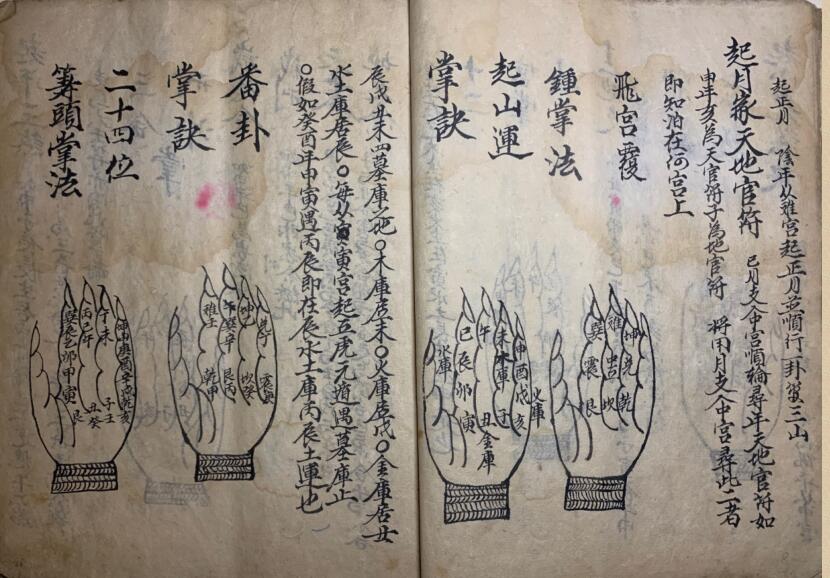 起正月 陰年从離宮起正月並順行一卦管三山
起月家天地官符 已月支入中宮順輪尋年天地官符如
申年亥為天官符子為地官符 將用月支入中宮尋此二者
即知泊在何宮上
飛宮覆
鍾掌法
起山運
掌訣
巽 離 坤
震 中宮 兌
艮 坎 乾
巳 午 未木庫 申
辰 酉
卯 戌 火庫
寅 丑金庫 子 亥
水庫
辰戌丑未四墓庫也○木庫居未○火庫居戌○金庫居丑
水土庫居辰○每从寅寅宮起五虎元遁遇墓庫止
○假如癸酉年甲寅遇丙辰即在辰水土庫丙辰土運也
番卦
掌訣
離壬
乾甲
艮丙
坎癸
震庚
二十四位
筭頭掌法
丙巳午
丁未
坤申庚酉辛戌乾亥
巽辰乙卯甲寅
艮
丑癸
子壬